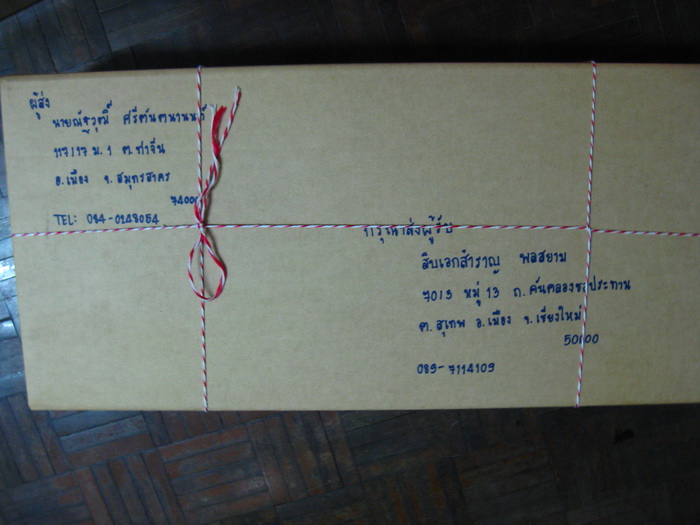 ผู้ส่ง
นายณัฐวุฒิ์ ศรีตันตนานนท์
117/17 ม.1 ต.ท่าจีน
อ.เมือง จ.สมุทรสาคร
74000
TEL: 084-0248054
กรุณาส่งผู้รับ
สิบเอกสำราญ พลสยาม
70/3 หมู่ 13 ถ.คันคลองชลประทาน
ต.สุเทพ อ.เมือง จ.เชียงใหม่
50000
089-7114109